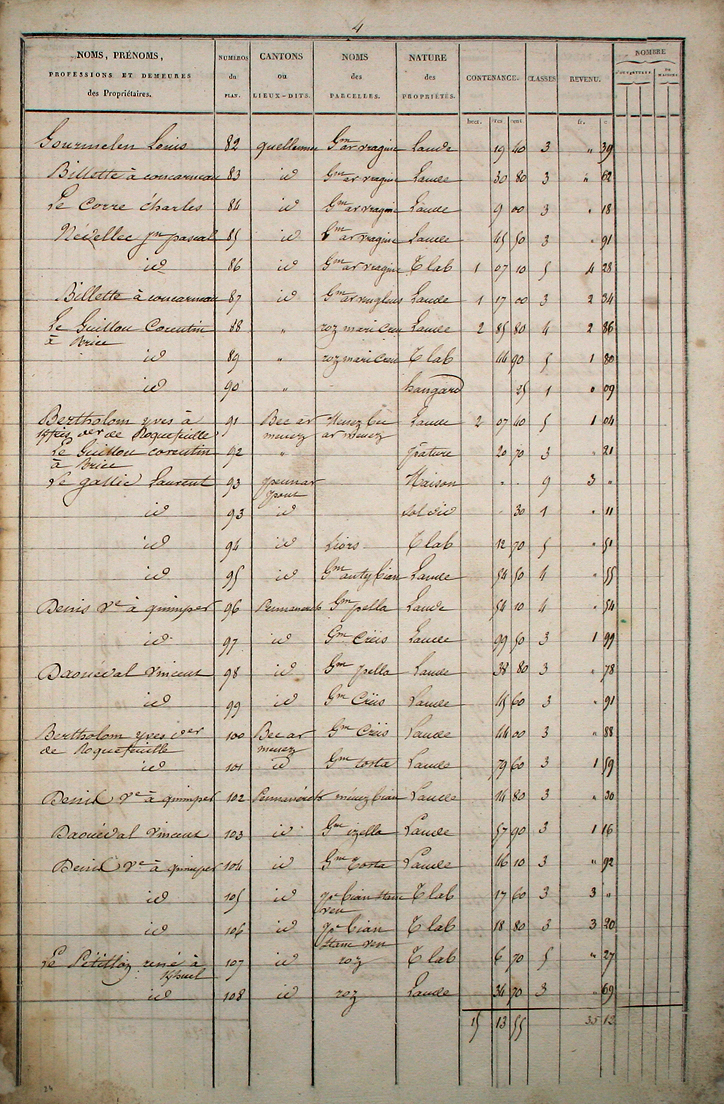 4
NOMS, PRÉNOMS, PROFESSIONS ET DEMEURES des Propriétaires. NUMÉROS du PLAN. CANTONS ou LIEUX-DITS. NOMS des PARCELLES. NATURE des PROPRIÉTÉS. CONTENANCE. CLASSES REVENU. NOMBRE
hect. ares cent. fr. c.
Gourmelen Louis 82 quellennec Gm ar vragine Lande 19 40 3 " 39
Billette à concarneau 83 id Gm ar vragine Lande 30 80 3 " 62
Le Corre charles 84 id Gm ar vragine Lande 9 00 3 " 18
Nédellec jn pascal 85 id Gm ar vragine Lande 45 50 3 " 91
id 86 id Gm ar vragine T lab 1 07 10 5 4 28
Billette à concarneau 87 id Gm Lande 1 17 00 3 2 34
Le Guillou Corentin 88 " roz mari Lande 2 85 80 4 2 86
à Brice
id 89 " roz mari T lab 44 90 5 1 80
id 90 " hangard 25 1 " 09
Bertholom yves à 91 Bec ar Menez bec Lande 2 07 40 5 1 04
der de Roquefeuille menez ar menez
Le Guillou corentin 92 " pature 20 70 3 " 21
à Brice
Le gallic Laurent 93 penn ar Maison " 9 3 "
pont
id 93 id sol id " 30 1 " 11
id 94 id Liors T lab 12 70 5 " 51
id 95 id Gm anty bian Lande 54 50 4 " 55
Denis Ve à quimper 96 Gm pella Lande 54 10 4 " 54
id 97 id Gm Creis Lande 99 50 3 1 99
Daouéval vincent 98 id Gm pella Lande 38 80 3 " 78
id 99 id Gm Creis Lande 45 60 3 " 91
Bertholom yves der 100 Bec ar Gm Creis Lande 44 00 3 " 88
de Roquefeuille menez
id 101 id Gm tosta Lande 79 60 3 1 59
Denis Ve à quimper 102 menez bian Lande 14 80 3 " 30
Daouéval vincent 103 id Gm izella Lande 57 90 3 1 16
Denis Ve à quimper 104 id Gm Tosta Lande 46 10 3 " 92
id 105 id pc bian stanc T lab 17 60 3 3 "
ven
id 106 id pc bian T lab 18 80 3 3 20
Stanc ven
Le Pétillon rené à 107 id roz T lab 6 70 5 " 27
id 108 id roz Lande 34 70 3 " 69
15 13 55 35 13
24